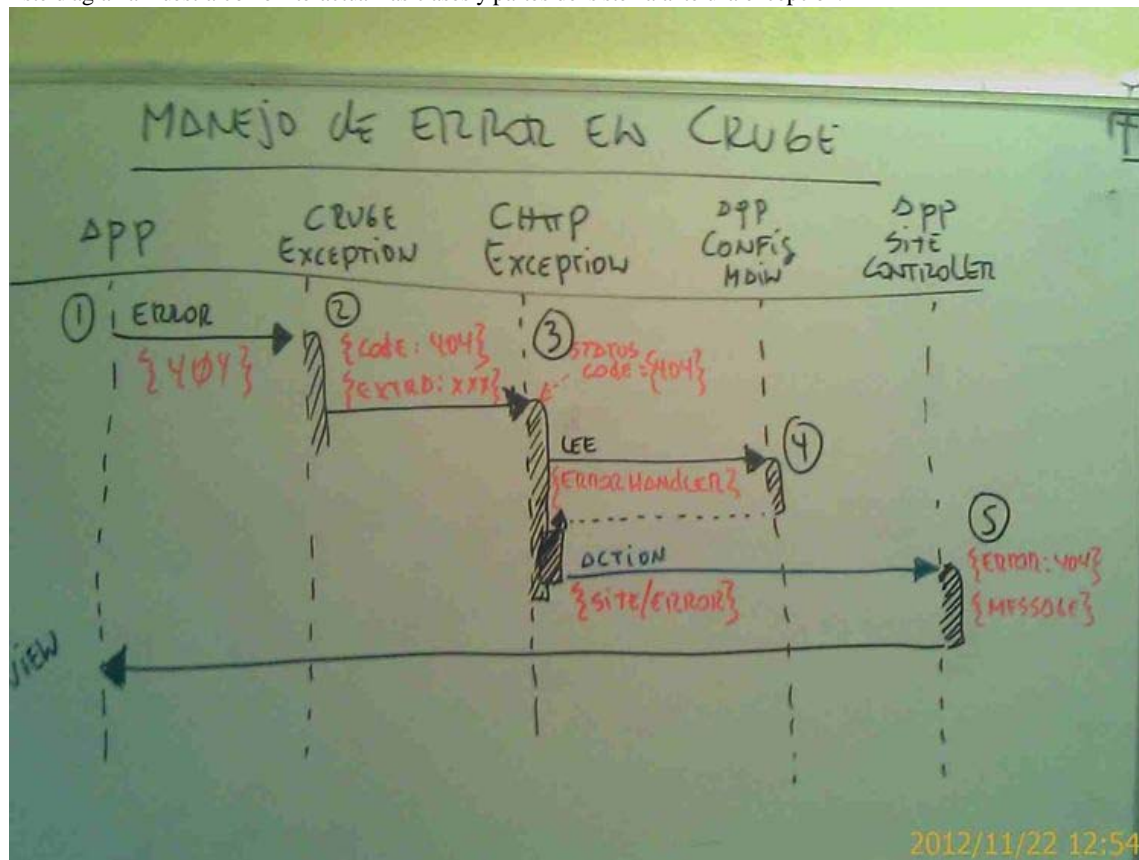 MANEJO DE ERROR EN CRUGE
APP
CRUGE
EXCEPTION
CHTTP
EXCEPTION
APP
CONFIG
MAIN
APP
SITE
CONTROLLER
①
ERROR
{404}
②
{CODE: 404}
{EXTRA: XXX}
③
STATUS
CODE={404}
LEE
④
{ERRORHANDLER}
ACTION
{SITE/ERROR}
⑤
{ERROR: 404}
{MESSAGE}
VIEW
2012/11/22 12:54